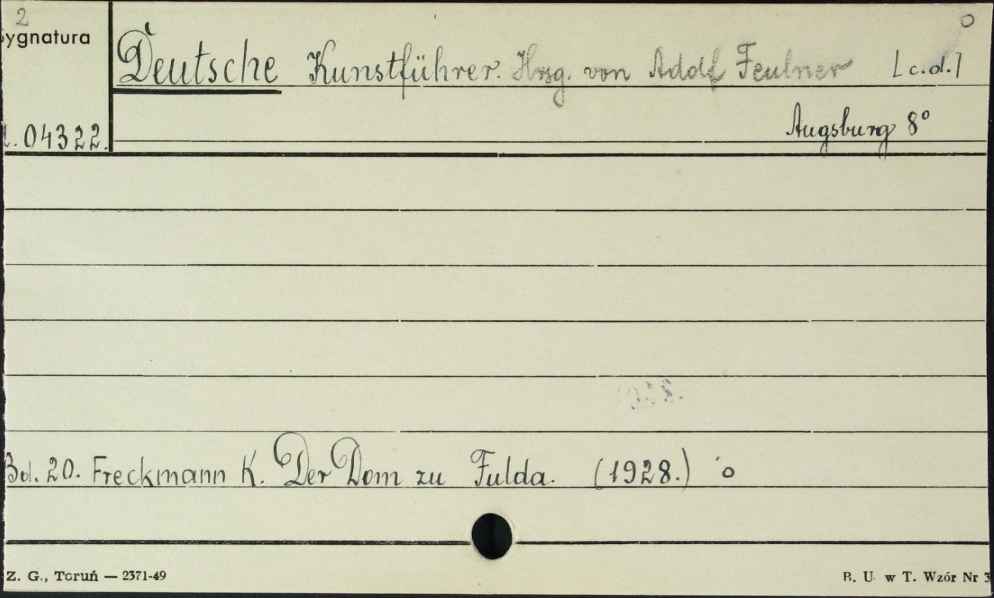 2
Sygnatura
Deutsche Kunstführer. Hrsg. von Adolf Feulner [c.d.]
04322.
Augsburg 8°
Bd. 20. Freckmann K. Der Dom zu Fulda. (1928.)
Z. G., Toruń — 2371-49
B. U. w T. Wzór Nr 3